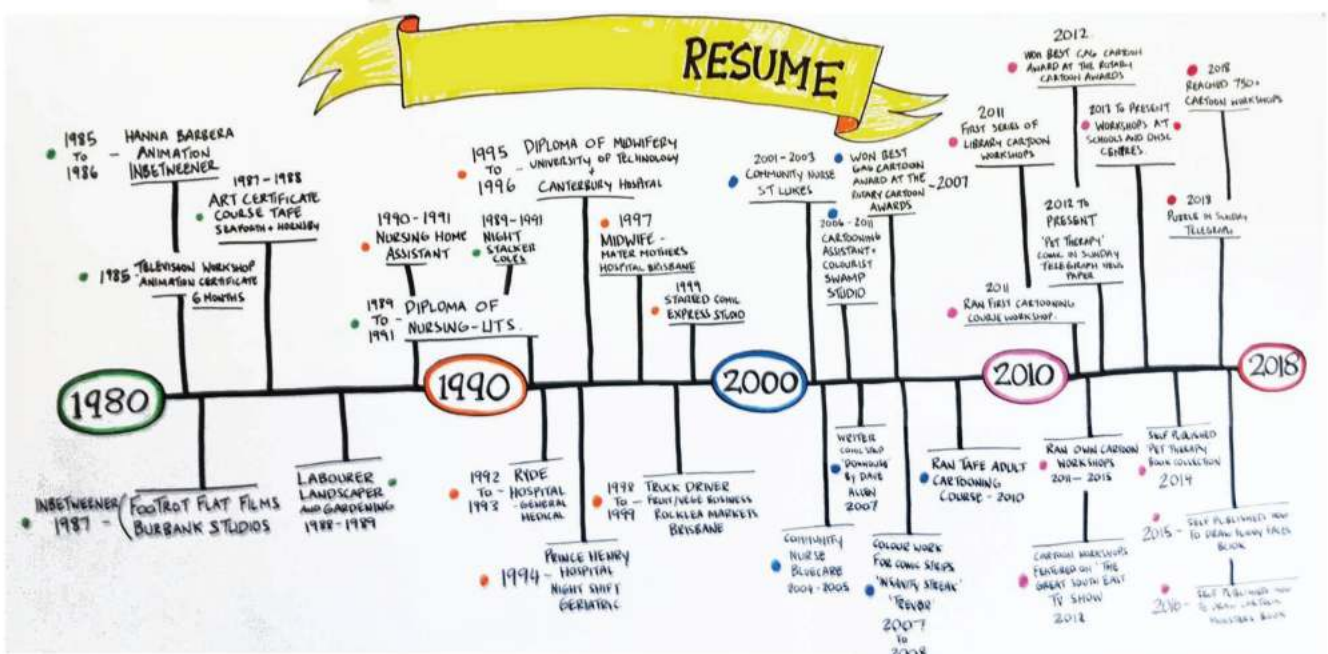 RESUME
1985
TO
1986
- HANNA BARBERA
ANIMATION
INBETWEENER
1987-1988
ART CERTIFICATE
COURSE TAFE
SEAFORTH + HORNSBY
1985 - TELEVISION WORKSHOP
ANIMATION CERTIFICATE
6 MONTHS
1990-1991
NURSING HOME
ASSISTANT
1989-1991
NIGHT
STACKER
COLES
1989
TO
1991
- DIPLOMA OF
NURSING-UTS.
1995
TO
1996
- DIPLOMA OF MIDWIFERY
UNIVERSITY OF TECHNOLOGY
+
CANTERBURY HOSPITAL
1997
MIDWIFE -
MATER MOTHERS
HOSPITAL BRISBANE
1999
STARTED COMIC
EXPRESS STUDIO
2001-2003
COMMUNITY NURSE
ST LUKES
WON BEST
GAG CARTOON
AWARD AT THE
ROTARY CARTOON
AWARDS
-2007
2006-2011
CARTOONING
ASSISTANT+
COLOURIST
SWAMP
STUDIO
2011
FIRST SERIES OF
LIBRARY CARTOON
WORKSHOPS
2012
WON BEST GAG CARTOON
AWARD AT THE ROTARY
CARTOON AWARDS
2011
RAN FIRST CARTOONING
COURSE WORKSHOP.
2012 TO
PRESENT
'PET THERAPY'
COMIC IN SUNDAY
TELEGRAPH NEWS
PAPER
2013 TO PRESENT
WORKSHOPS AT
SCHOOLS AND OHSC
CENTRES.
2018
REACHED 750+
CARTOON WORKSHOPS
2018
PUZZLE IN SUNDAY
TELEGRAPH
1980
1990
2000
2010
2018
INBETWEENER
1987 -
FOOTROT FLAT FILMS
BURBANK STUDIOS
LABOURER
LANDSCAPER
AND GARDENING
1988-1989
1992
TO
1993
- RYDE
HOSPITAL
-GENERAL
MEDICAL
1994 -
PRINCE HENRY
HOSPITAL
NIGHT SHIFT
GERIATRIC
1998
TO
1999
- TRUCK DRIVER
FRUIT/VEGE BUSINESS
ROCKLEA MARKETS
BRISBANE
COMMUNITY
NURSE
BLUECARE
2004-2005
WRITER
COMIC STRIP
BY DAVE
ALLEN
2007
COLOUR WORK
FOR COMIC STRIPS
'INSANITY STREAK'
'TREVOR'
2007
TO
2008
RAN TAFE ADULT
CARTOONING
COURSE - 2010
RAN OWN CARTOON
WORKSHOPS
2011-2015
CARTOON WORKSHOPS
FEATURED ON 'THE
GREAT SOUTH EAST
TV SHOW
2012
SELF PUBLISHED
'PET THERAPY'
BOOK COLLECTION
2014
2015 - SELF PUBLISHED HOW
TO DRAW FUNNY FACES
BOOK
2016 - SELF PUBLISHED HOW
TO DRAW CARTOON
MONSTERS BOOK